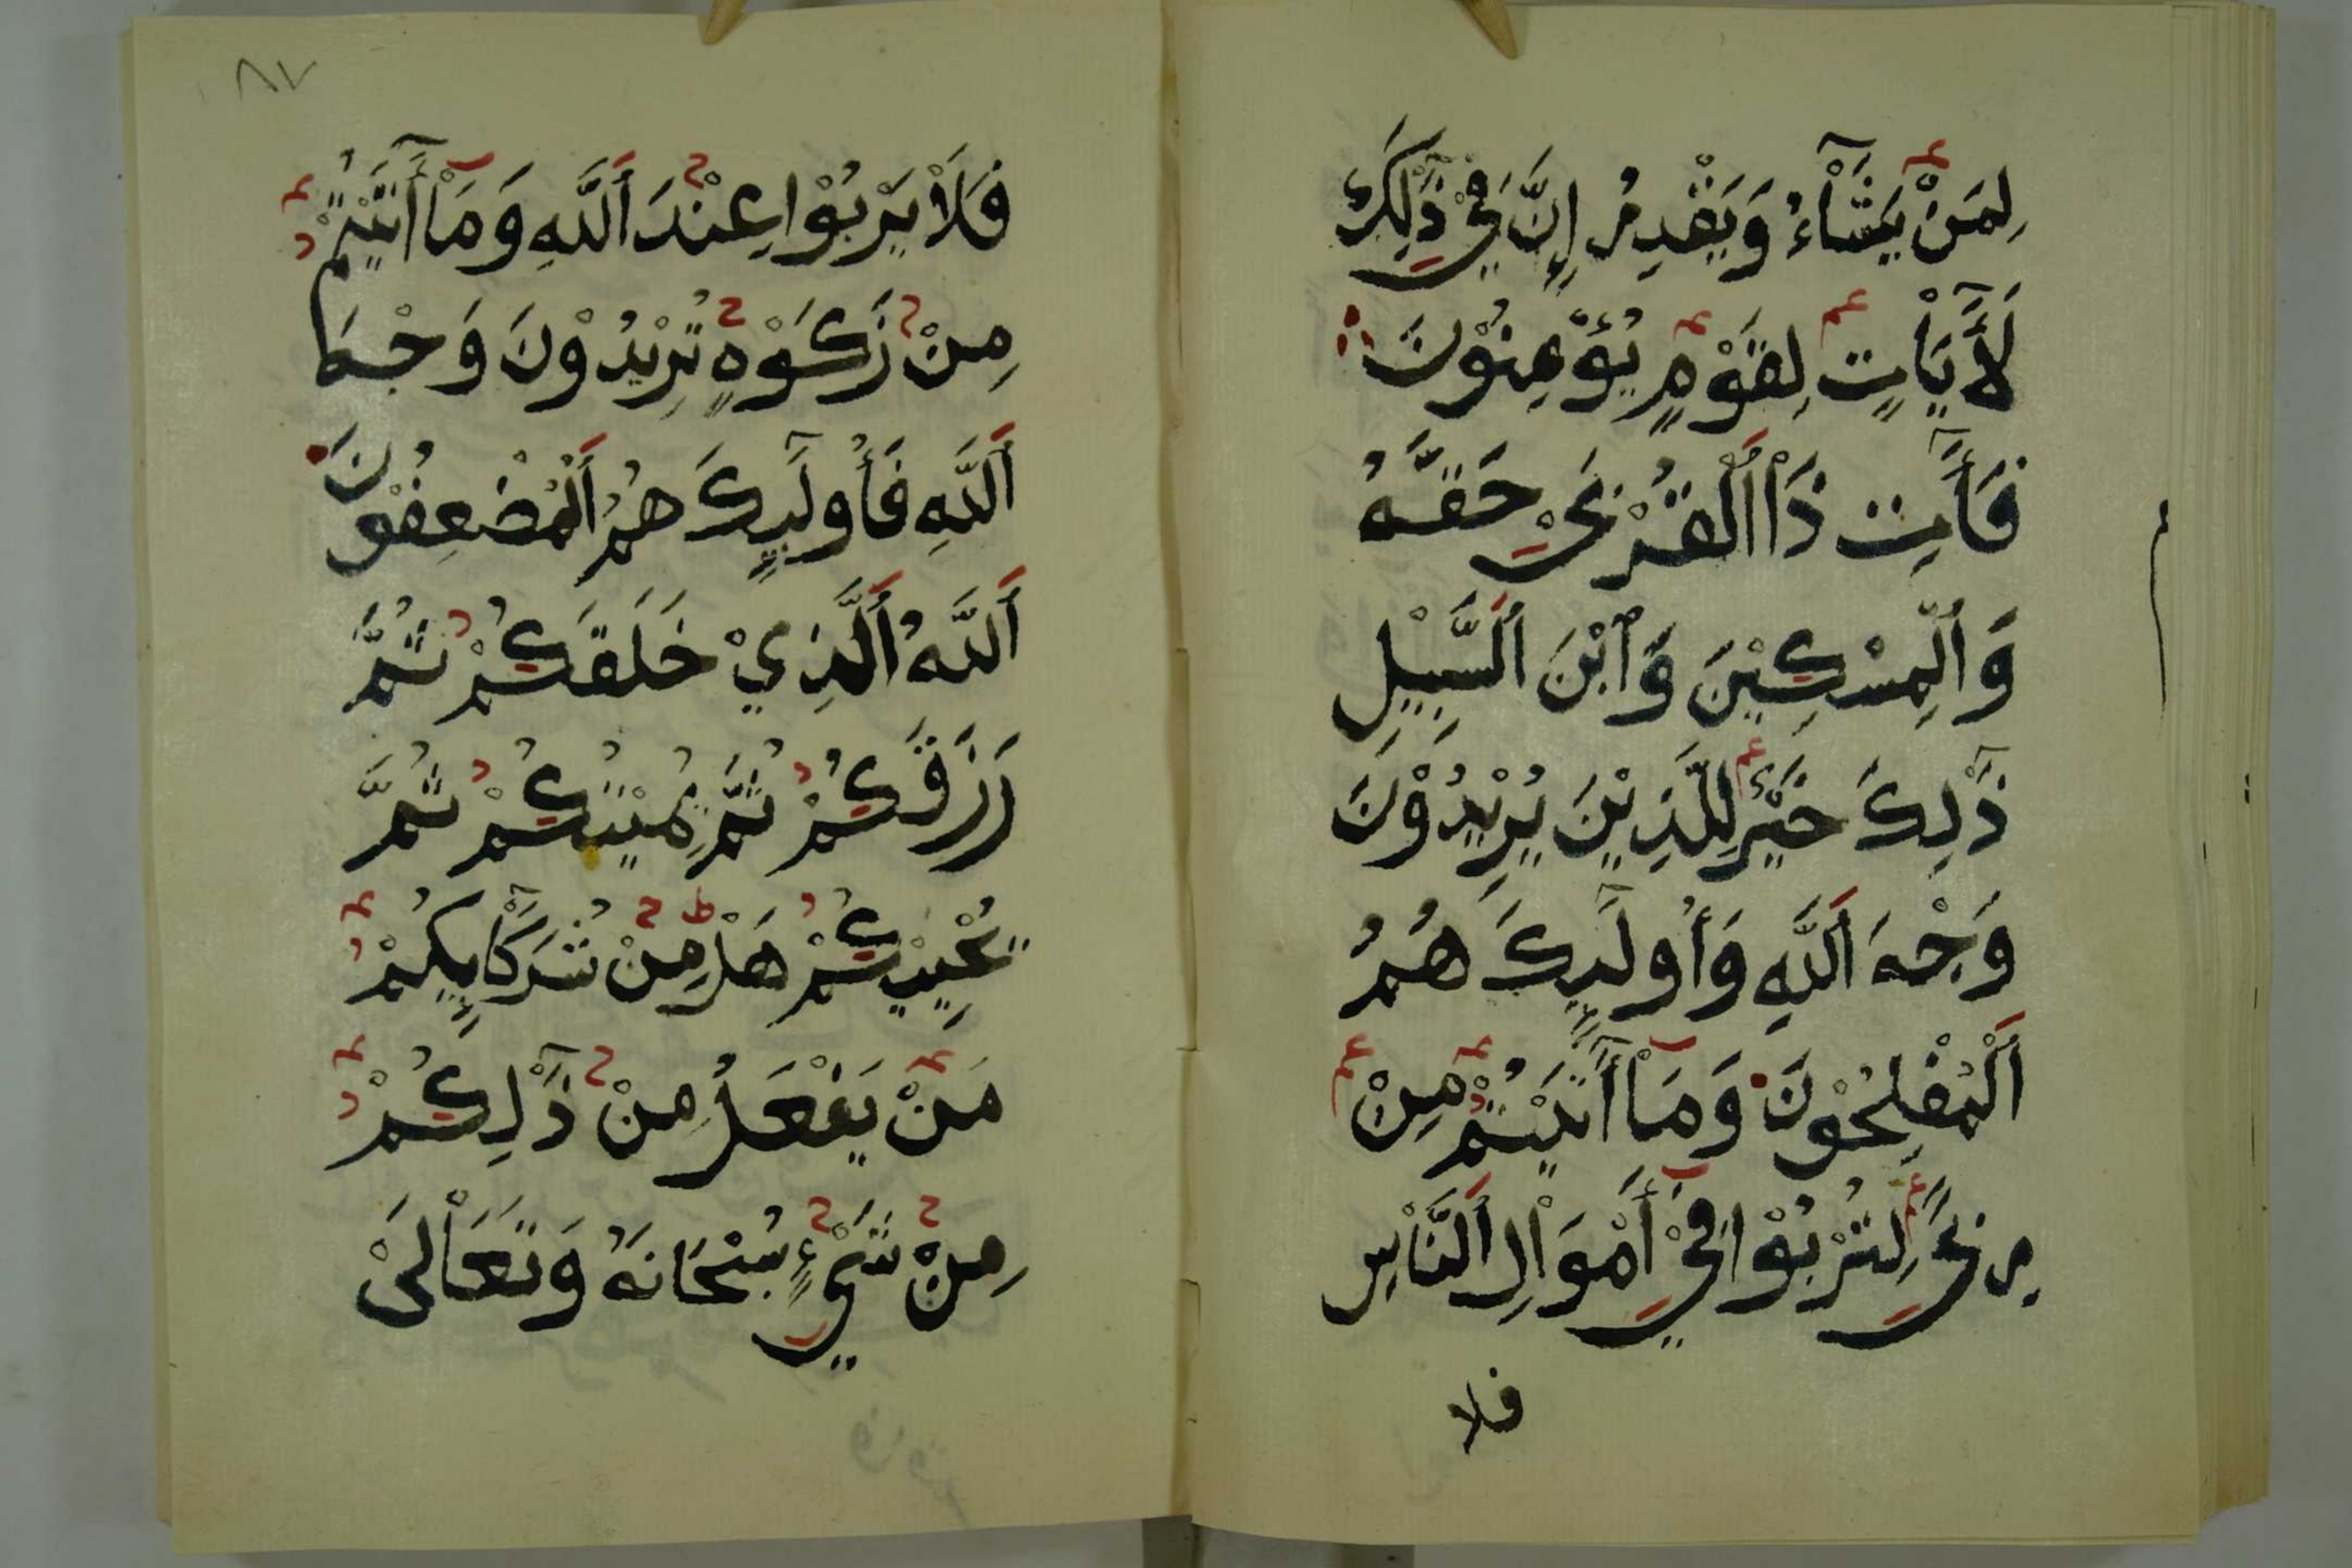 لِمَنْ يَشَآءُ وَيَقْدِرُ إِنَّ فِيْ ذَٰلِكَ
لَأَيَاتٍ لِقَوْمٍ يُؤْمِنُوْنَ
فَأَتِ ذَا ٱلْقُرْبَىْ حَقَّهُ
وَٱلْمِسْكِيْنَ وَٱبْنَ ٱلسَّبِيْلِ
ذَٰلِكَ خَيْرٌ لِلَّذِيْنَ يُرِيْدُوْنَ
وَجْهَ ٱللَّهِ وَأُولَٰيِٕكَ هُمُ
ٱلْمُفْلِحُوْنَ وَمَآ أَتَيْتُمْ مِنْ
رِبًى لِتُرْبُوْا فِيْ أَمْوَالِ ٱلنَّاسِ
فلا
٨٧
فَلَا يَرْبُوْا عِنْدَ ٱللَّهِ وَمَآ أَتَيْتُمْ
مِنْ زَكَوٰةٍ تُرِيْدُوْنَ وَجْهَ
ٱللَّهِ فَأُولَٰيِٕكَ هُمُ ٱلْمُضْعِفُوْنَ
ٱللَّهُ ٱلَّذِيْ خَلَقَكُمْ ثُمَّ
رَزَقَكُمْ ثُمَّ يُمِيْتُكُمْ ثُمَّ
يُحْيِيْكُمْ هَلْ مِنْ شُرَكَآيِٕكُمْ
مَنْ يَفْعَلُ مِنْ ذَٰلِكُمْ
مِنْ شَيْءٍ سُبْحَانَهُ وَتَعَالَىْ